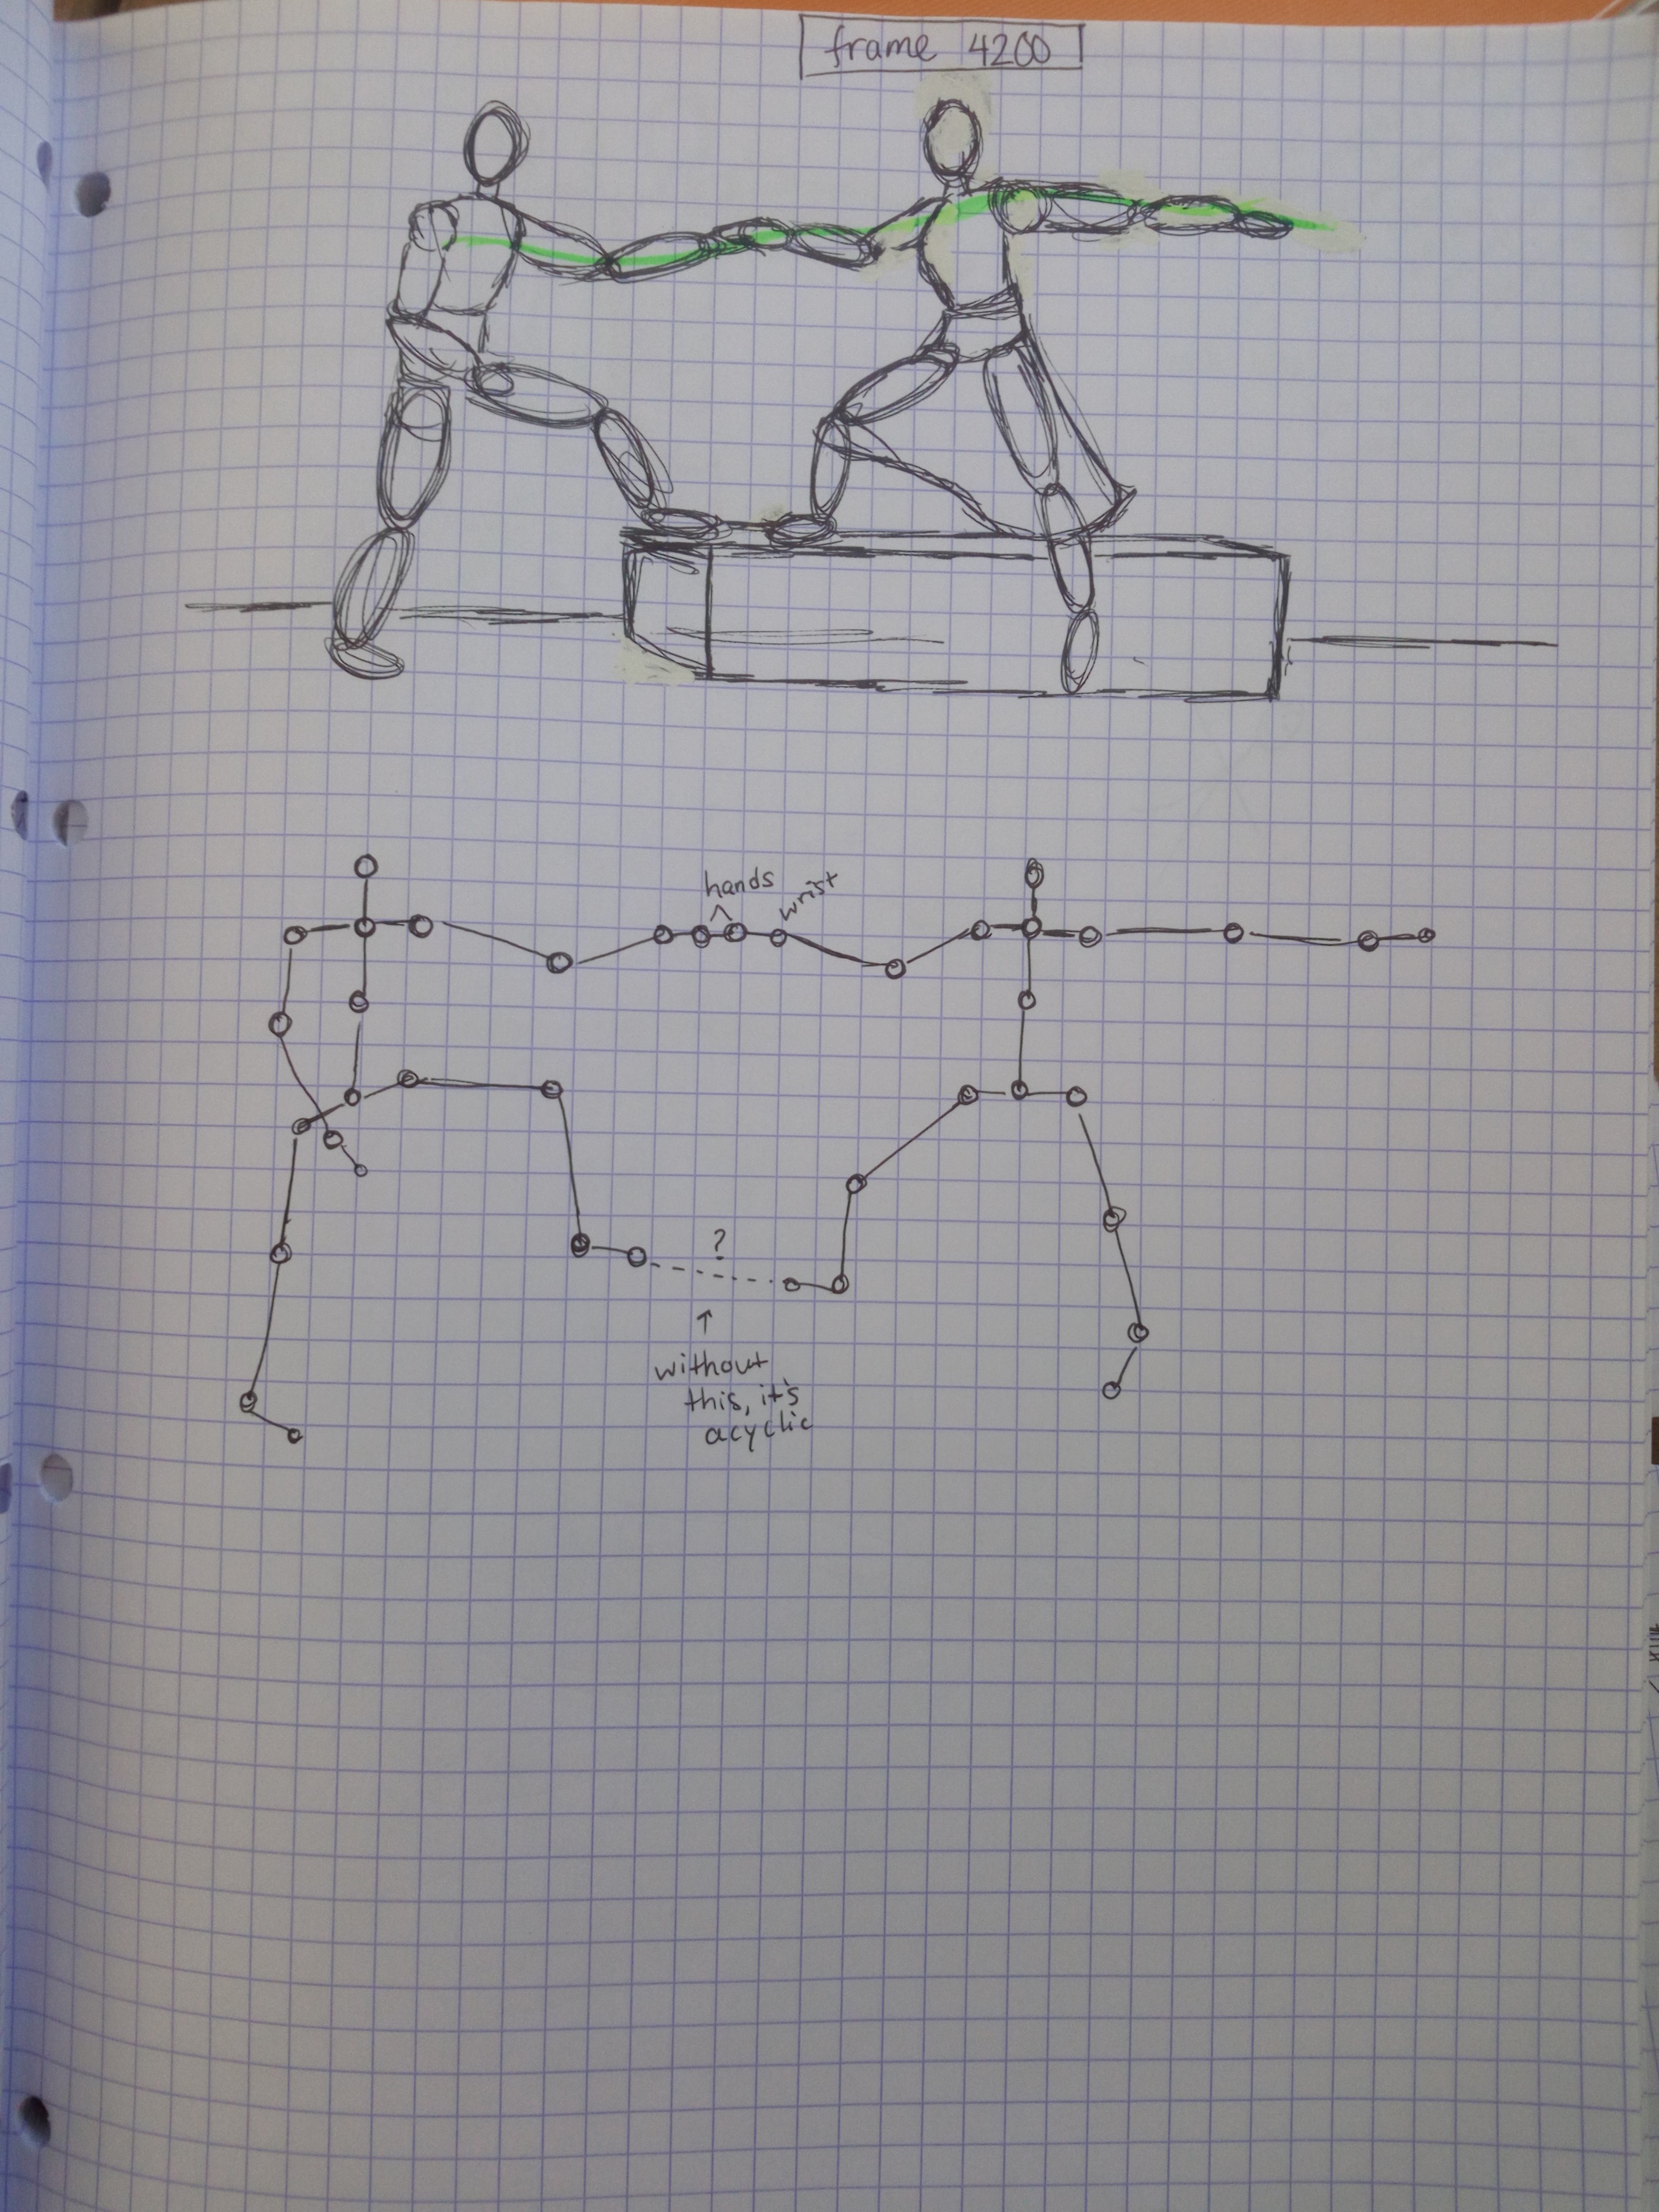 frame 4200
hands
wrist
?
without
this, it's
acyclic